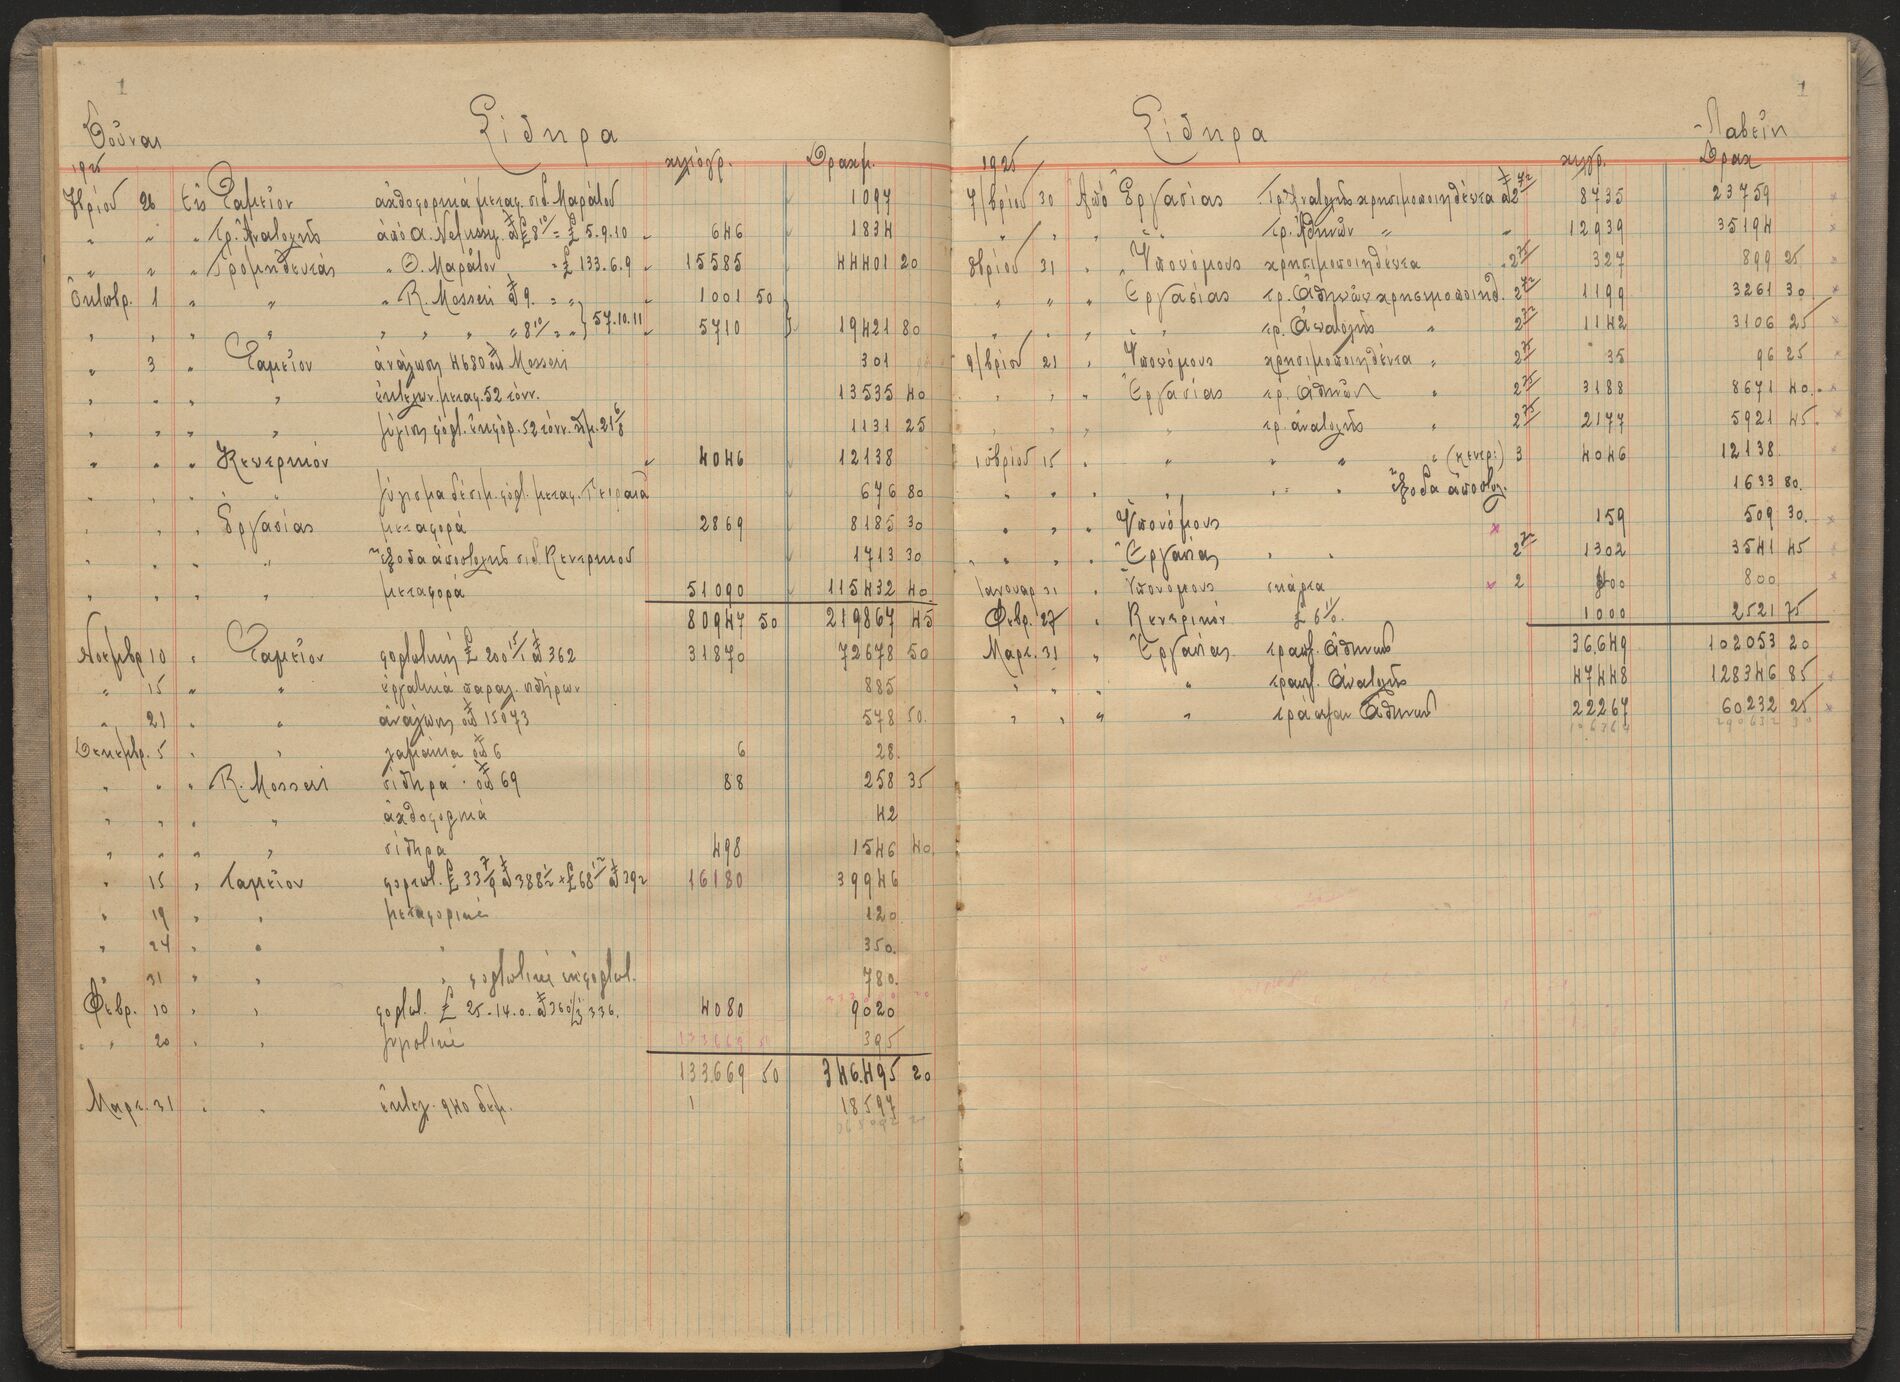 1
Δοῦναι Σίδηρα
1925 χιλιόγρ. Δραχμ.
7βρίου 26 Εἰς Ταμεῖον ἀχθοφορικά μεταφ. σιδ. Μαράτου 1097
" " " Τρ. Ἀνατολῆς ἀπό A. Nefussy £ 8 10/ = £ 5.9.10 646 1834
" " " Προμηθευτάς " Θ. Μαράτον = £ 133.6.9 15585 44401 20
Ὀκτωβρ. 1 " " " R. Mosseri 9. " " 1001 50
" " " " " " " " 8 10/ " " 57.10.11 5710 19421 80
" 3 " Ταμεῖον ἀνάλωσις 4680 Mosseri 301
" " " " ἐκτελων. μεταφ. 52 τόνν. 13535 40
" " " " ζύγισις φορτ. ἐκφόρ. 52 τόνν. 1131 25
" " " Κεντρικόν 4046 12138
" " " " ζύγισμα δέσιμ. φορτ. μεταφ. Πειραιᾶ 676 80
" " " Ἐργασίας μεταφορά 2869 8185 30
" " " " ἔξοδα ἀποστολῆς σιδ. Κεντρικοῦ 1713 30
" " " " μεταφορά 51090 115432 40
80947 50 219867 45
Νοεμβρ 10 " Ταμεῖον φορτωτική £ 200 15/1 362 31870 72678 50
" 15 " " ἐργατικά παραλ. σιδήρων 885
" 21 " " ἀνάλωσις 15073 578 50
Δεκεμβρ. 5 " " λαμάκια 6 6 28
" " " R. Mosseri σίδηρα 69 88 258 35
" " " " ἀχθοφορικά 42
" " " " σίδηρα 498 1546 40
" 15 " Ταμεῖον φορτωτ. £ 33 7/9 388 1/2 + £ 68 392 16180 39946
" 19 " " μεταφορικά 120
" 24 " " " 350
" 31 " " " φορτωτικά ἐκφορτωτ. 780
Φεβρ. 10 " " φορτωτ. £ 25-14-0. 360 336. 4080 9020
" " 20 " " ζυγιστικά 133669 50 395
133669 50 346.495 20
Μαρτ. 31 " " ἐκτελ. 940 δεμ. 18597
1
Σίδηρα Λαβεῖν
1925 χιλγρ. Δραχ
7/βρίου 30 Ἀπό Ἐργασίας Τρ. Ἀνατολῆς χρησιμοποιηθέντα 2 72 8735 23759
" / " " " Τρ. Ἀθηνῶν " " 12939 35194
8βρίου 31 " Ὑπονόμους χρησιμοποιηθέντα 2 75 327 899 25
" " " Ἐργασίας τρ. Ἀθηνῶν χρησιμοποιηθ. 2 72 1199 3261 30
" / " " " τρ. Ἀνατολῆς " 2 72 1142 3106 25
9/βρίου 21 " Ὑπονόμους χρησιμοποιηθέντα " 2 75 35 96 25
" " " Ἐργασίας τρ. Ἀθηνῶν " 2 75 3188 8671 40
" " " " τρ. ἀνατολῆς " 2 75 2177 5921 45
10βρίου 15 " " " " " (κεντρ:) 3 4046 12138
" " " " " " ἔξοδα ἀποστολ. 1633 80
" " " Ὑπονόμους 159 509 30
" " " Ἐργασίας " " 2 72 1302 3541 45
Ἰανουαρ 31 " Ὑπονόμους σκάρτα 2 400 800
Φεβρ. 27 " Κεντρικόν £ 6 11/0. 1000 2521 75
Μαρτ. 31 " Ἐργασίας τραπ. Ἀθηνῶν 36,649 102053 20
" " " " τραπ. Ἀνατολῆς 47448 128346 85
" " " " τραπεζαν Ἀθηνῶν 22267 60232 25
290632 30